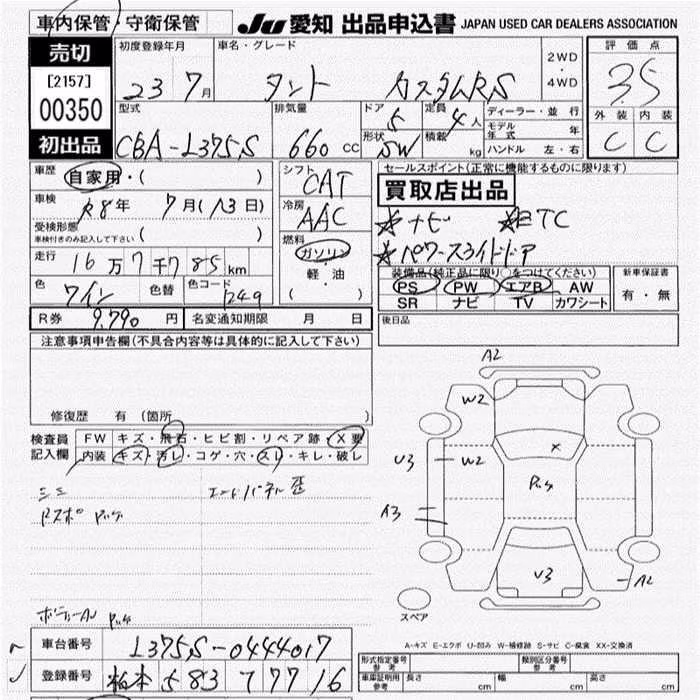 車内保管・守衛保管 JU 愛知 出品申込書 JAPAN USED CAR DEALERS ASSOCIATION
売切
[2157]
00350
初出品
初度登録年月 23 7月
車名・グレード タント カスタムRS
2WD
4WD
評価点 3.5
外装 C 内装 C
型式 CBA-L375S
排気量 660 cc
ドア 5
形状 SW
定員 4人
積載 kg
ディーラー・並行
モデル年式 年
ハンドル 左・右
車歴 自家用・( )
車検 R8年 7月(13日)
受検形態
車検付きのみ記入して下さい ( )
走行 16万7千785km
色 ワイン 色替 色コード
R券 9,790円 名変通知期限 月 日
シフト CAT
冷房 AAC
燃料 ガソリン
軽・油
( ・ )
セールスポイント(正常に機能するものに限ります)
買取店出品
ナビ ETC
パワースライドドア
装備品(純正品に限り○をつけてください)
PS PW エアB AW
SR ナビ TV カワシート
新車保証書
有・無
後日品
注意事項申告欄(不具合内容等は具体的に記入して下さい)
修復歴 有(箇所 )
検査員記入欄
FW キズ・飛石・ヒビ割・リペア跡・X要
内装 キズ・汚レ・コゲ・穴・スレ・キレ・破レ
A2
W2
U3 W2
A3
U3
A2
スペア
A-キズ E-エクボ U-凹み W-補修跡 S-サビ C-腐食 XX-交換済
車台番号 L375S-0444017
登録番号 583 7716
型式指定番号 参考
類別区分番号 参考
車庫証明用 参考 長さ cm 幅 cm 高さ cm